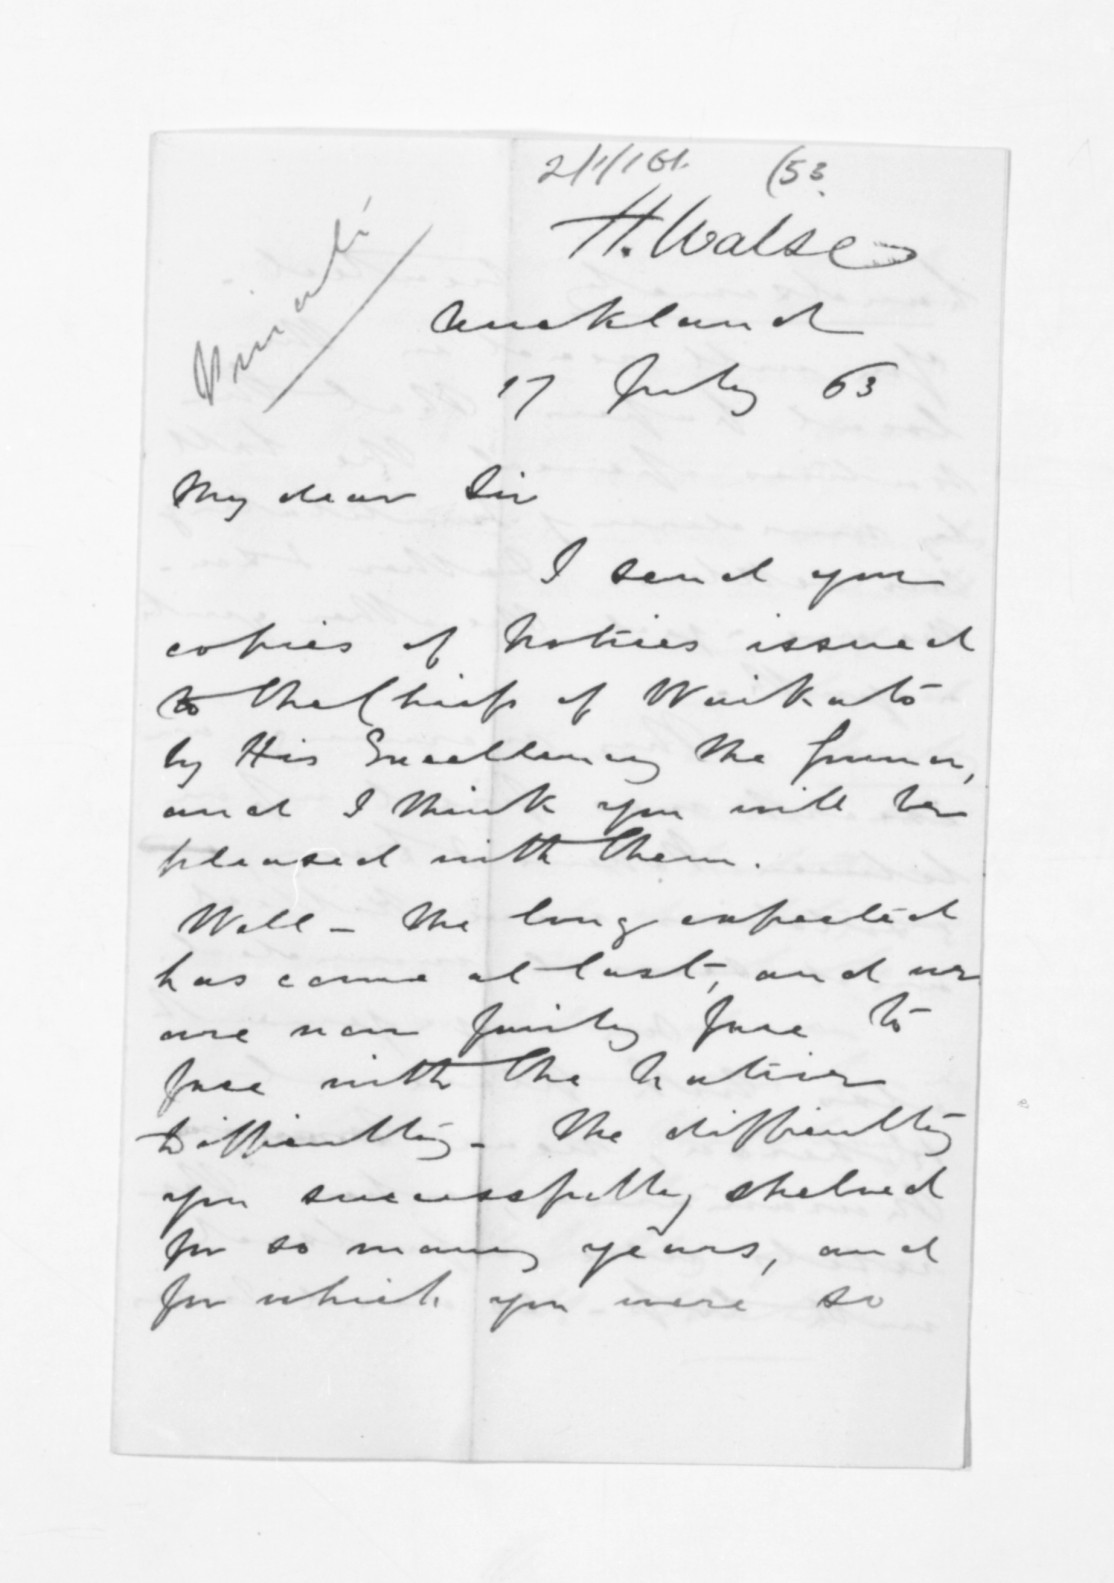 (53.
H. Walse
Private
Auckland
17 July 63
My dear Sir
I send you
copies of Notices issued
to the Chiefs of Waikato
by His Excellency the Governor,
and I think you will be
pleased with them.
Well - the long expected
has come at last, and we
are now fairly face to
face with the Native
Difficulty - The difficulty
you successfully shelved
for so many years, and
for which you were so